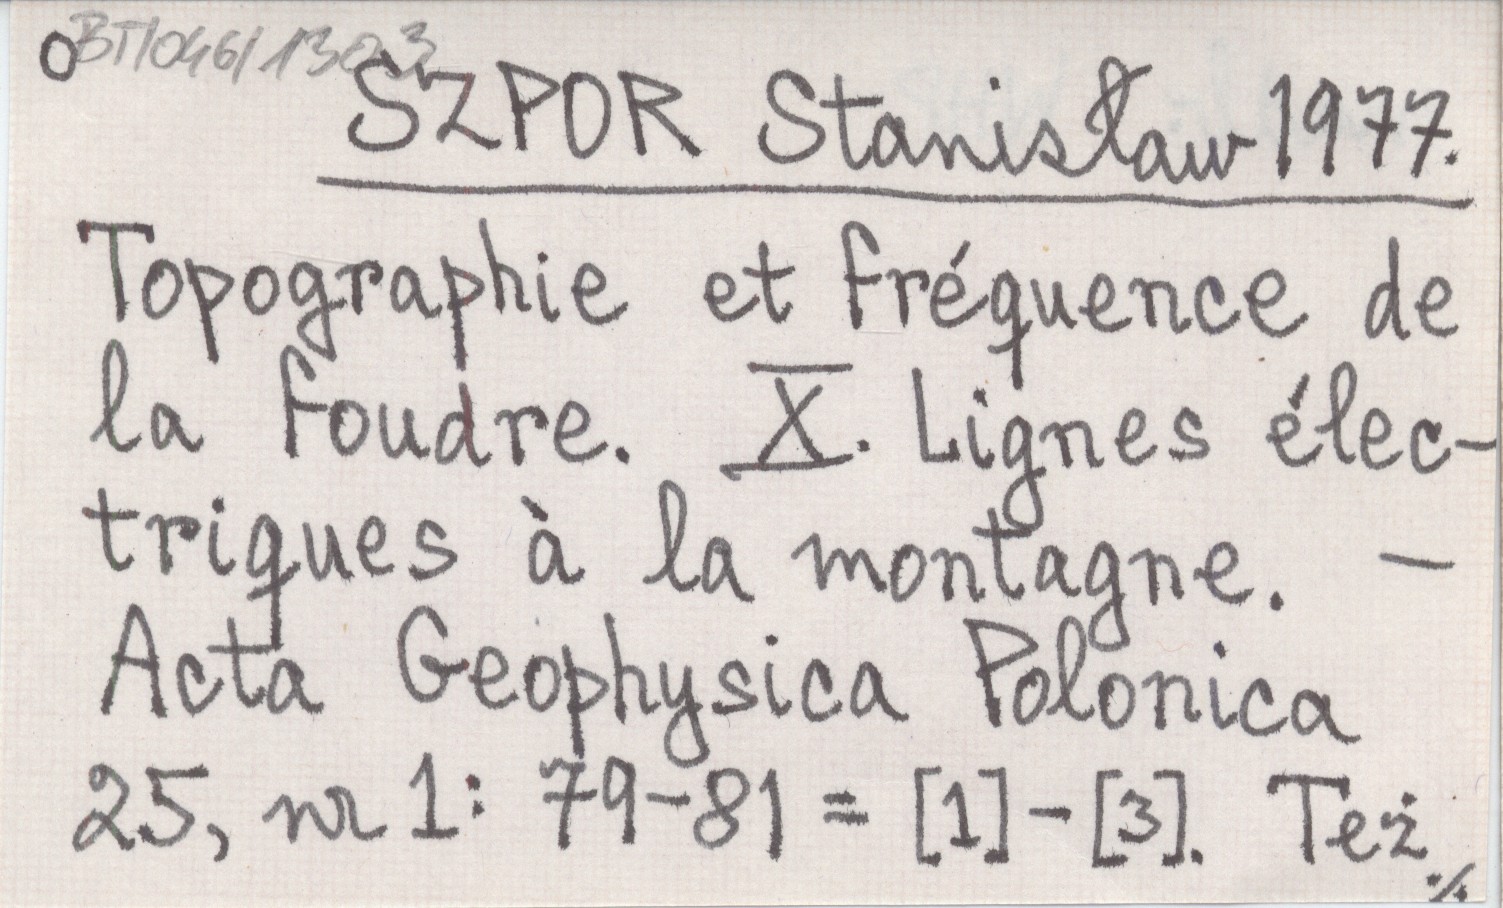 BT/046/1303
SZPOR Stanisław 1977.
Topographie et fréquence de
la foudre. X. Lignes élec-
triques à la montagne. —
Acta Geophysica Polonica
25, nr 1: 79-81 = [1]-[3]. Też
./.